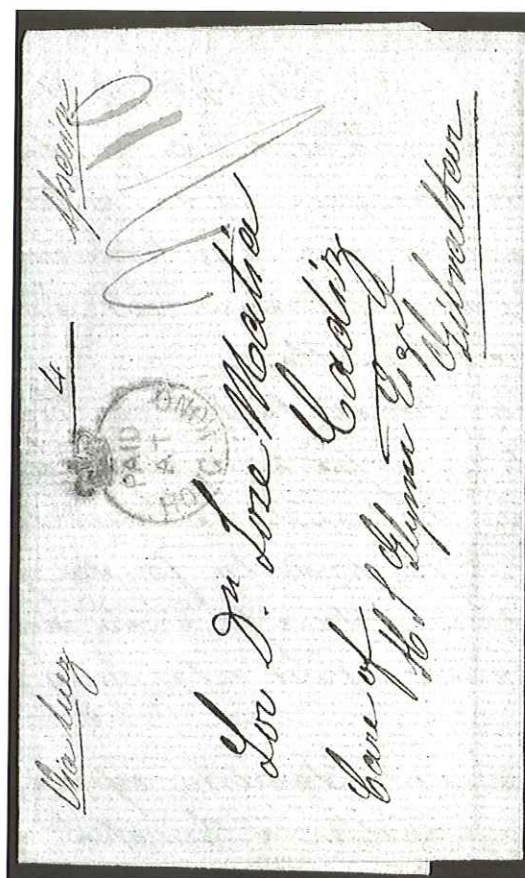 Via Suez
4
Spain
PAID
AT
HONG-KONG
Sor Dn Jose Matia
Cadiz
Care of
Esq
Gibraltar